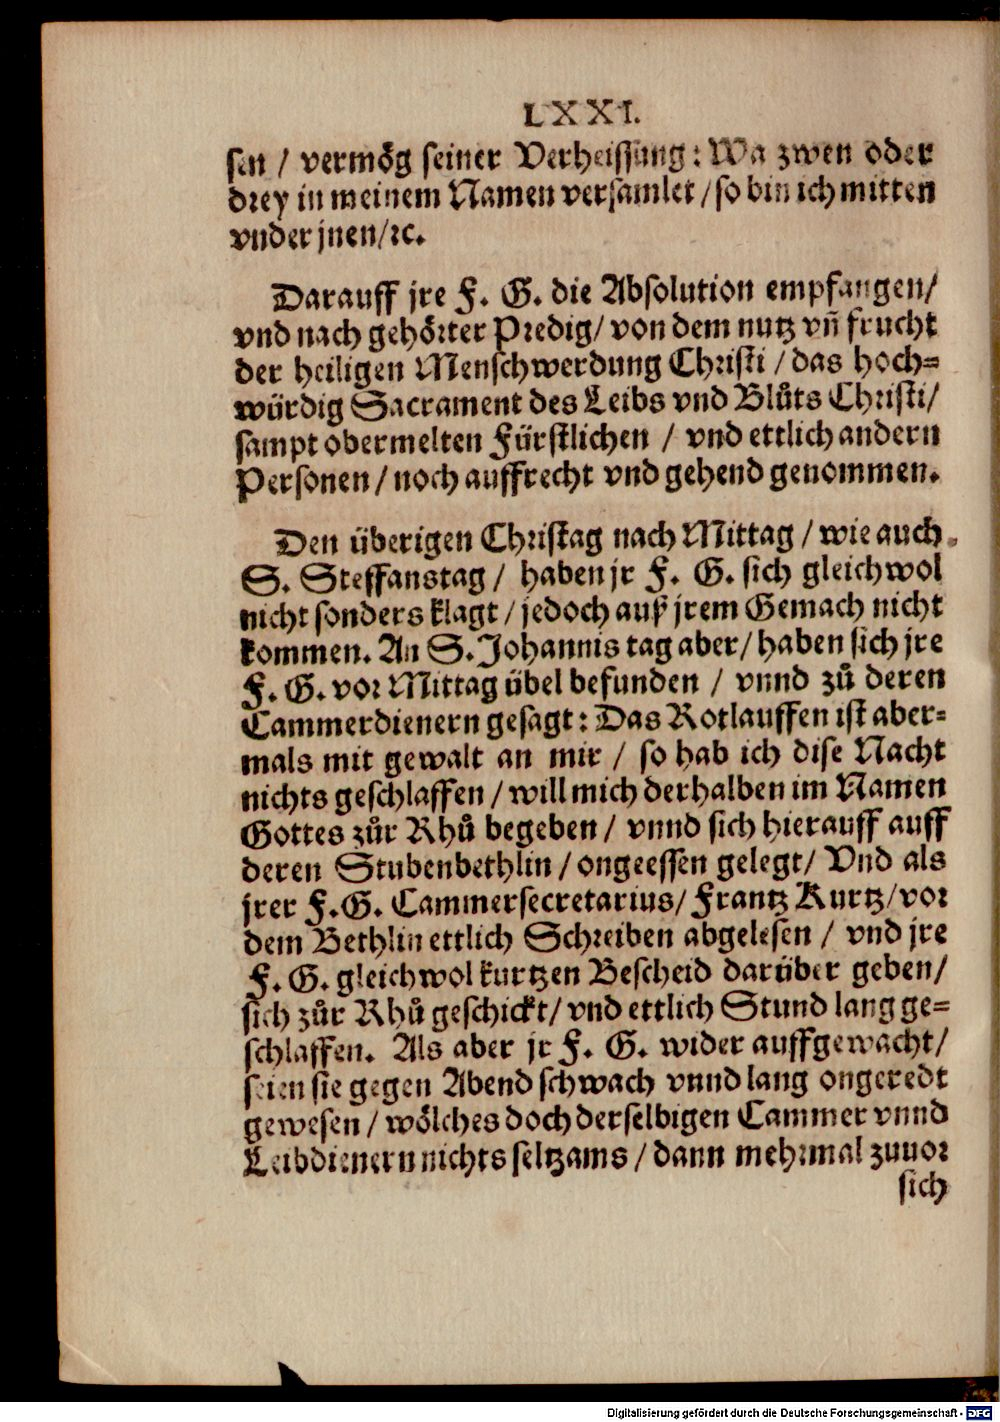 LXXI.
sen / vermög seiner Verheissung: Wa zwen oder
drey in meinem Namen versamlet / so bin ich mitten
vnder jnen / ꝛc.
Darauff jre F. G. die Absolution empfangen /
vnd nach gehörter Predig / von dem nutz vñ frucht
der heiligen Menschwerdung Christi / das hoch=
würdig Sacrament des Leibs vnd Blůts Christi /
sampt obermelten Fürstlichen / vnd ettlich andern
Personen / noch auffrecht vnd gehend genommen.
Den überigen Christag nach Mittag / wie auch
S. Steffanstag / haben jr F. G. sich gleichwol
nicht sonders klagt / jedoch auß jrem Gemach nicht
kommen. An S. Johannis tag aber / haben sich jre
F. G. vor Mittag übel befunden / vnnd zů deren
Cammerdienern gesagt: Das Rotlauffen ist aber=
mals mit gewalt an mir / so hab ich dise Nacht
nichts geschlaffen / will mich derhalben im Namen
Gottes zůr Rhů begeben / vnnd sich hierauff auff
deren Stubenbethlin / ongeessen gelegt / Vnd als
jrer F. G. Cammersecretarius / Frantz Kurtz / vor
dem Bethlin ettlich Schreiben abgelesen / vnd jre
F. G. gleichwol kurtzen Bescheid darüber geben /
sich zůr Rhů geschickt / vnd ettlich Stund lang ge=
schlaffen. Als aber jr F. G. wider auffgewacht /
seien sie gegen Abend schwach vnnd lang ongeredt
gewesen / wölches doch derselbigen Cammer vnnd
Leibdienern nichts seltzams / dann mehrmal zuuor
sich
Digitalisierung gefördert durch die Deutsche Forschungsgemeinschaft - DFG